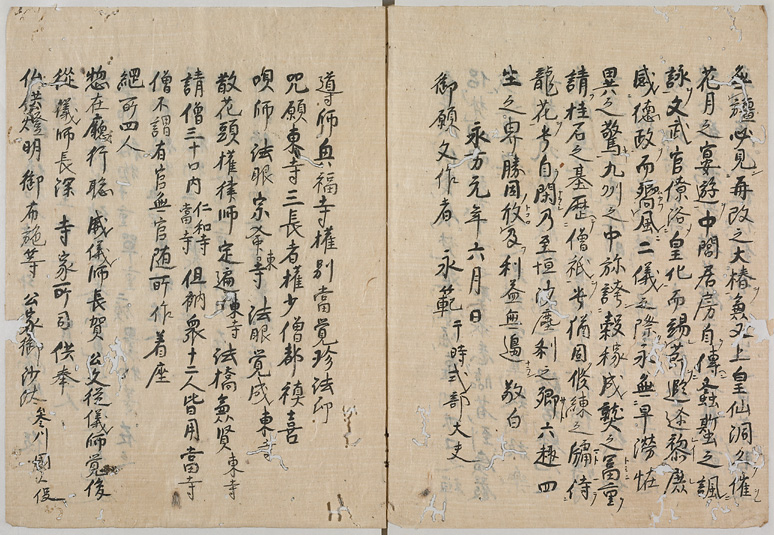 無疆必見再改之大椿兼又上皇仙洞久催
花月之宴遊中閤居房自傳螽斯之諷
詠文武官僚浴皇化而錫羨遐迩黎庶
感德政而嚮風二儀之際永無旱澇恠
異之驚九州之中弥誇穀稼成熟之冨重
請桂石之基歴僧祇兮猶固修練之牖待
龍花兮自開乃至恒沙塵利之郷六趣四
生之界勝因攸及利益無邉敬白
永万元年六月日
御願文作者永範于時式部大史
導師興福寺權別當覺珍法印
咒願東寺三長者權少僧都禎喜
唄師法眼宗命東寺法眼覺成東寺
散花頭權律師定遍東寺法橋兼賢東寺
請僧三十口内仁和寺當寺但衲衆十二人皆用當寺
僧不謂有官無官随所作着座
綱所四人
惣在廳行聡威儀師長賀公文従儀師覺俊
従儀師長深寺家所司供奉
仏供燈明御布施等公家御沙汰